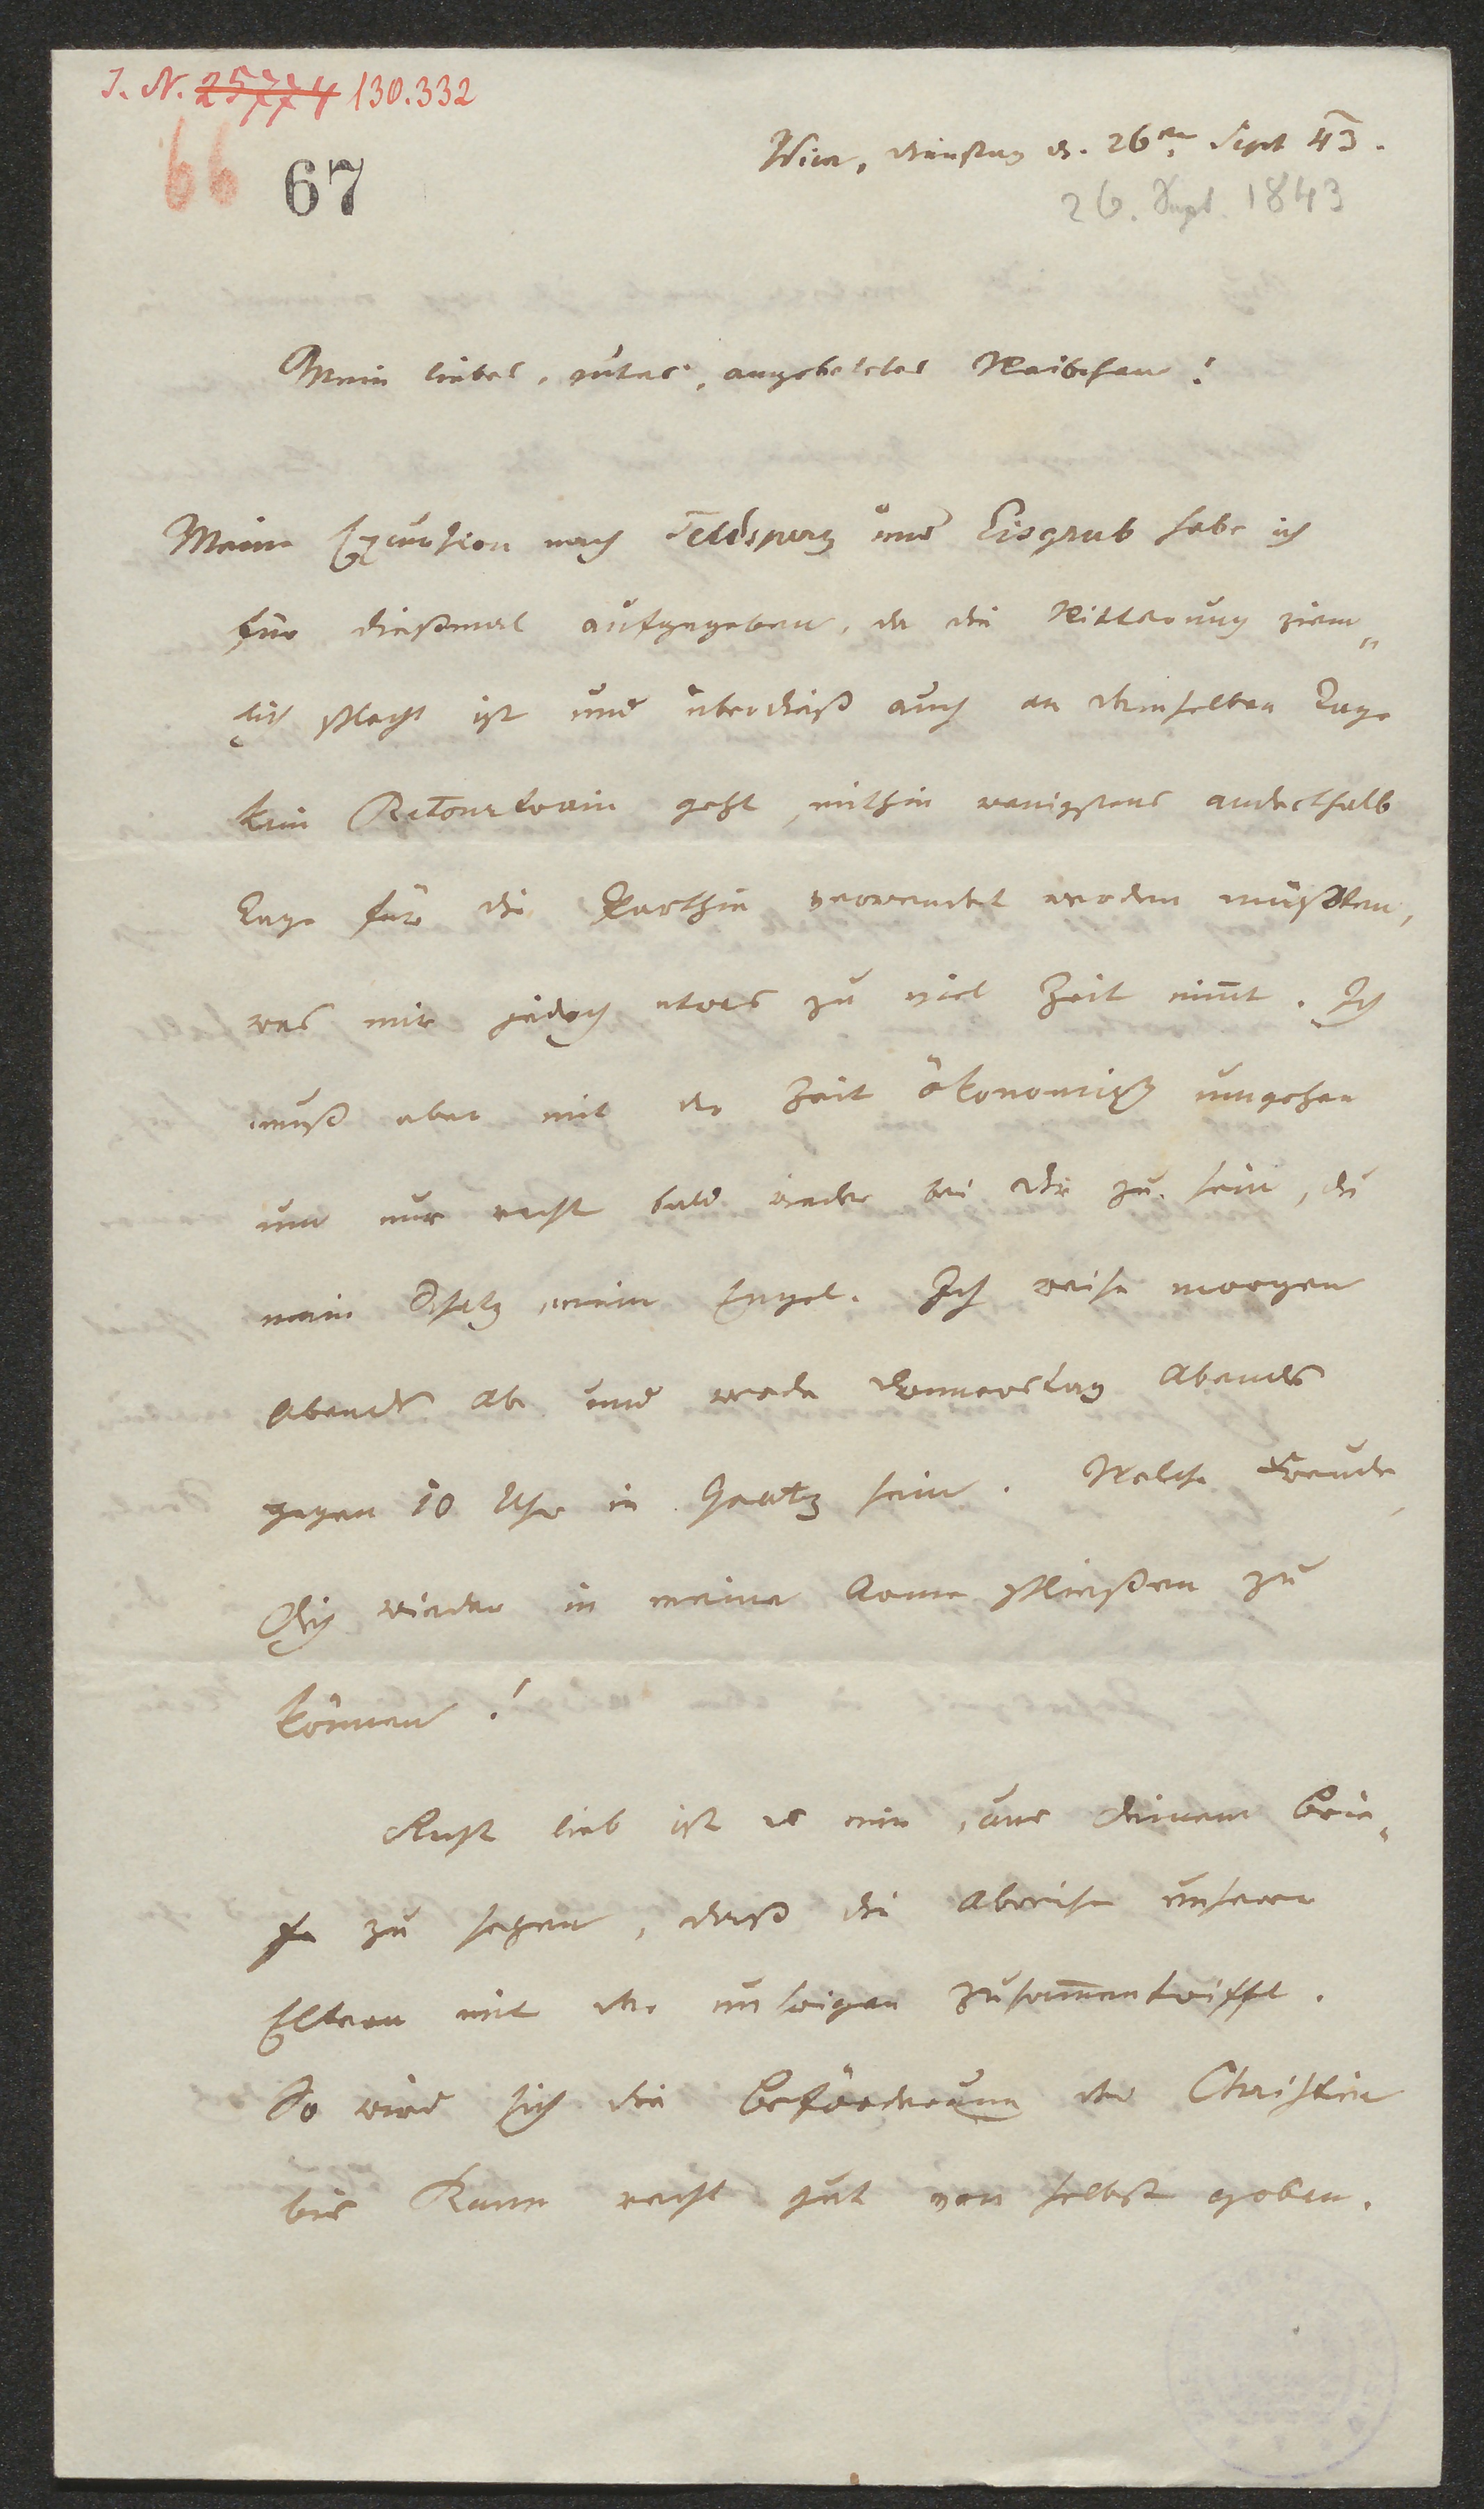 J. N. 25774 130.332
66 67
Wien, Dienstag d. 26ten Sept 43.
26. Sept. 1843
Mein liebes, gutes, angebetetes Weibchen!
Meine Excursion nach Feldsperg und Eisgrub habe ich
für dießmal aufgegeben, da die Witterung ziem„
lich schlecht ist und überdieß auch an demselben Tage
kein Retourtrain geht, mithin wenigstens anderthalb
Tage für die Parthie verwendet werden müßten,
was mir jedoch etwas zu viel Zeit nim̄t. Ich
muß aber mit der Zeit ökonomisch umgehen
um nur recht bald wieder bei dir zu sein, du
mein Schatz, mein Engel. Ich reise morgen
Abends ab und werde Donnerstag Abends
gegen 10 Uhr in Graetz sein. Welche Freude,
Dich wieder in meine Arme schließen zu
können!
Recht lieb ist es mir, aus deinem Brie„
fe zu sehen, daß die Abreise unserer
Eltern mit der unsrigen zusam̄entrifft.
So wird sich die Beförderung der Christine
bis Rann recht gut von selbst geben.